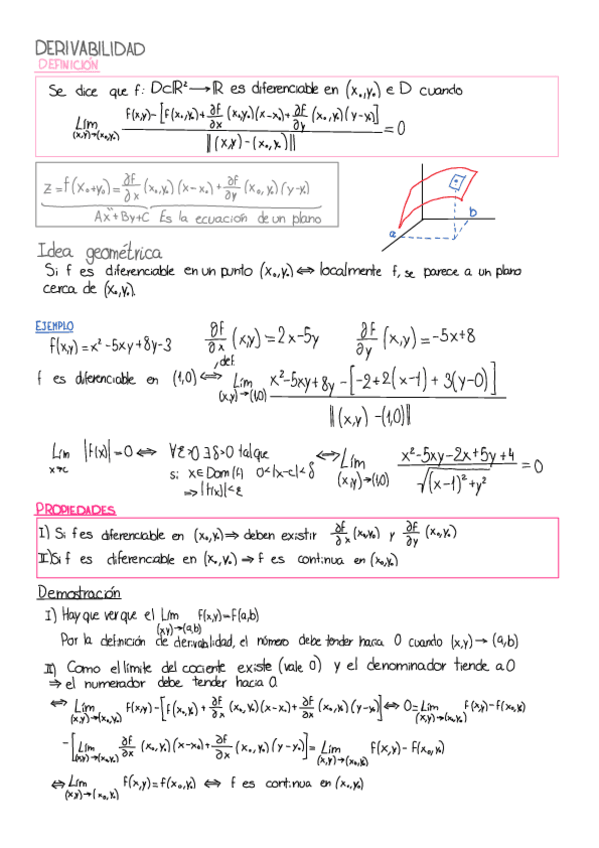 DERIVABILIDAD
DEFINICIÓN
Se dice que f: D⊂ℝ² → ℝ es diferenciable en (x₀,y₀) ∈ D cuando
Lím (x,y)→(x₀,y₀) f(x,y)-[f(x₀,y₀)+∂f/∂x (x₀,y₀)(x-x₀)+∂f/∂y (x₀,y₀)(y-y₀)] / ||(x,y)-(x₀,y₀)|| = 0
z=f(x₀+y₀)=∂f/∂x (x₀,y₀)(x-x₀)+∂f/∂y (x₀,y₀)(y-y₀)
Ax+By+C Es la ecuación de un plano
a
b
Idea geométrica
Si f es diferenciable en un punto (x₀,y₀) ⇔ localmente f, se parece a un plano
cerca de (x₀,y₀).
EJEMPLO
f(x,y)=x²-5xy+8y-3 ∂f/∂x (x,y)=2x-5y ∂f/∂y (x,y)=-5x+8
f es diferenciable en (1,0) ⇔ def. Lím (x,y)→(1,0) x²-5xy+8y-[-2+2(x-1)+3(y-0)] / ||(x,y)-(1,0)||
Lím x→c |f(x)|=0 ⇔ ∀ε>0 ∃δ>0 tal que
si x∈Dom(f) 0<|x-c|<δ
⇒ |f(x)|<ε
⇔ Lím (x,y)→(1,0) x²-5xy-2x+5y+4 / √((x-1)²+y²) = 0
PROPIEDADES
I) Si f es diferenciable en (x₀,y₀) ⇒ deben existir ∂f/∂x (x₀,y₀) y ∂f/∂y (x₀,y₀)
II) Si f es diferenciable en (x₀,y₀) ⇒ f es continua en (x₀,y₀)
Demostración
I) Hay que ver que el Lím (x,y)→(a,b) f(x,y)=f(a,b)
Por la definición de derivabilidad, el número debe tender hacia 0 cuando (x,y)→(a,b)
II) Como el límite del cociente existe (vale 0) y el denominador tiende a 0
⇒ el numerador debe tender hacia 0.
⇔ Lím (x,y)→(x₀,y₀) f(x,y)-[f(x₀,y₀)+∂f/∂x (x₀,y₀)(x-x₀)+∂f/∂x (x₀,y₀)(y-y₀)] ⇔ 0=Lím (x,y)→(x₀,y₀) f(x,y)-f(x₀,y₀)
-[Lím (x,y)→(x₀,y₀) ∂f/∂x (x₀,y₀)(x-x₀)+∂f/∂x (x₀,y₀)(y-y₀)]= Lím (x,y)→(x₀,y₀) f(x,y)-f(x₀,y₀)
⇔ Lím (x,y)→(x₀,y₀) f(x,y)=f(x₀,y₀) ⇔ f es continua en (x₀,y₀)